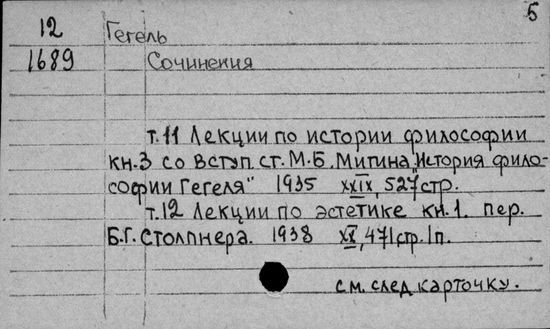 5
12 Гегель
1689 Сочинения
т.11 Лекции по истории философии
кн.3 со вступ. ст. М.Б. Митина „История фило-
софии Гегеля" 1935 XXIX, 527 стр.
т.12 Лекции по эстетике кн.1. пер.
Б.Г. Столпнера. 1938 XX, 471 стр. 1 п.
см. след карточку.